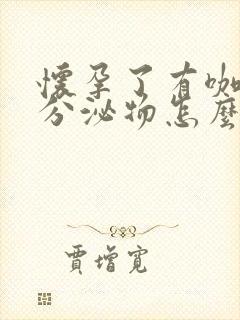 懷孕了有咖
分泌物怎麼
賈增寬